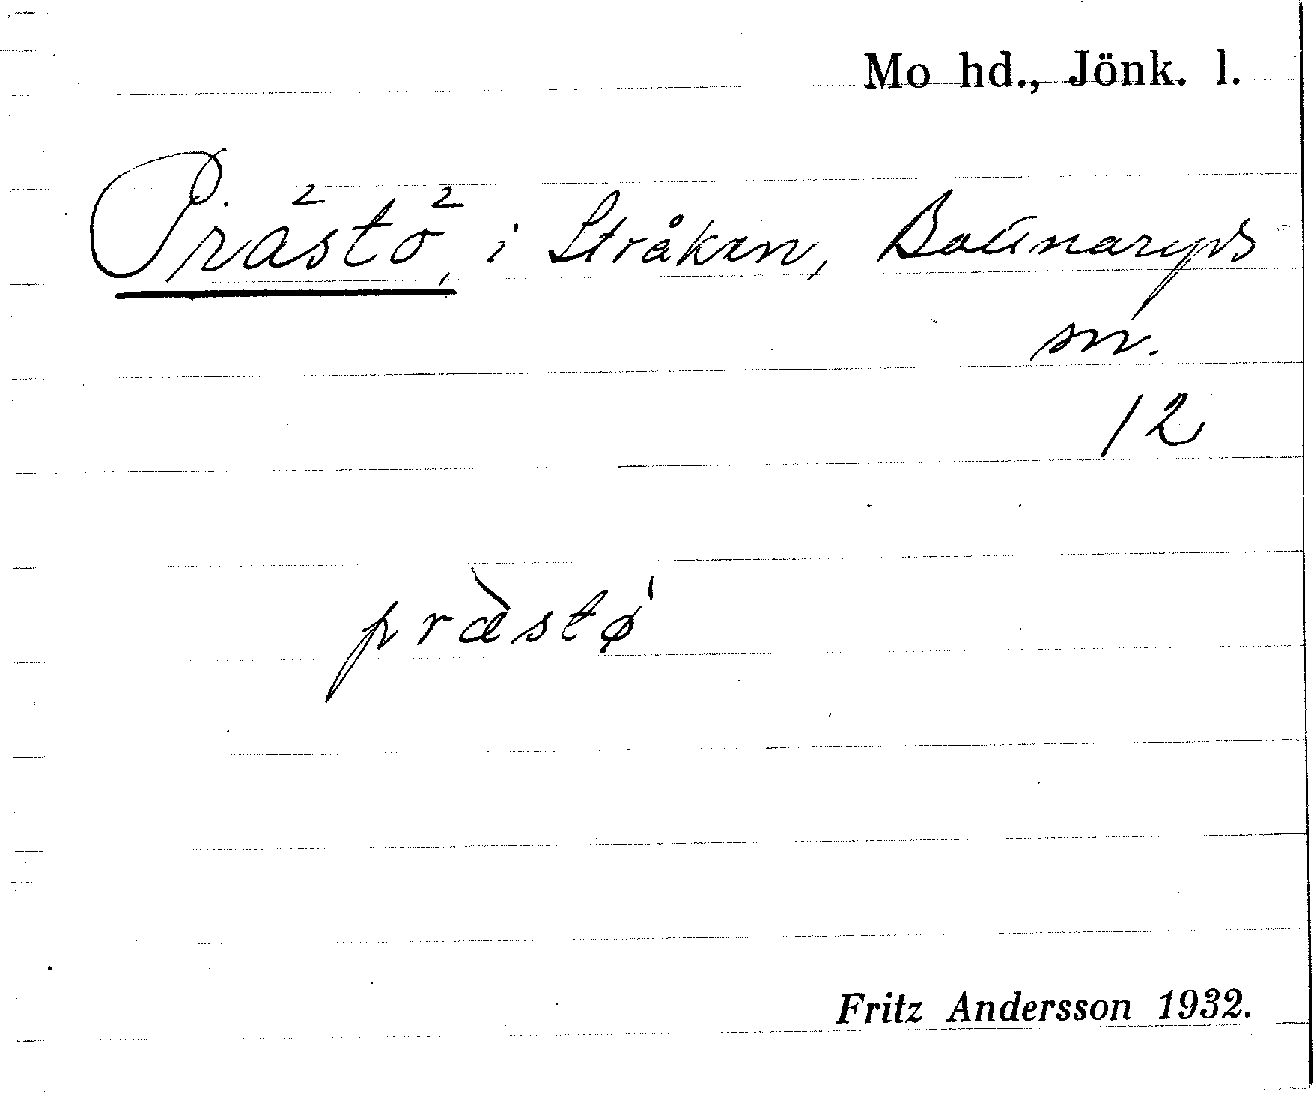 Mo hd., Jönk. l.
Prästö, i Stråken, Bottnaryds
sn.
12
præ̀stǿ
Fritz Andersson 1932.